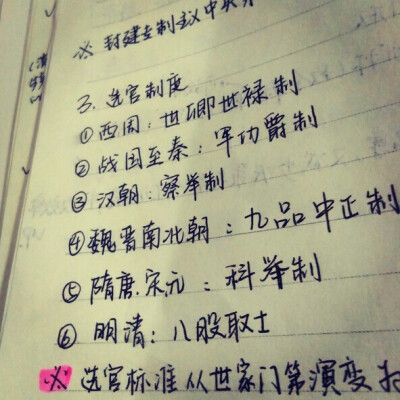 ※ 封建专制主义中央
3、选官制度
①西周：世卿世禄制
②战国至秦：军功爵制
③汉朝：察举制
④魏晋南北朝：九品中正制
⑤隋唐宋元：科举制
⑥明清：八股取士
※ 选官标准从世家门第演变为